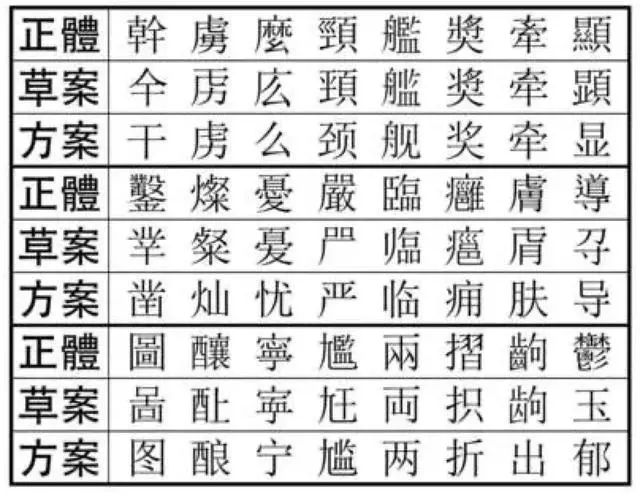 正體 幹 虜 麼 頸 艦 獎 牽 顯
草案 仐 頚 奨 牵 顕
方案 干 虏 么 颈 舰 奖 牵 显
正體 鑿 燦 憂 嚴 臨 癰 膚 導
草案
方案 凿 灿 忧 严 临 痈 肤 导
正體 圖 釀 寧 尷 兩 摺 齣 鬱
草案 啚 両 抧 玉
方案 图 酿 宁 尴 两 折 出 郁